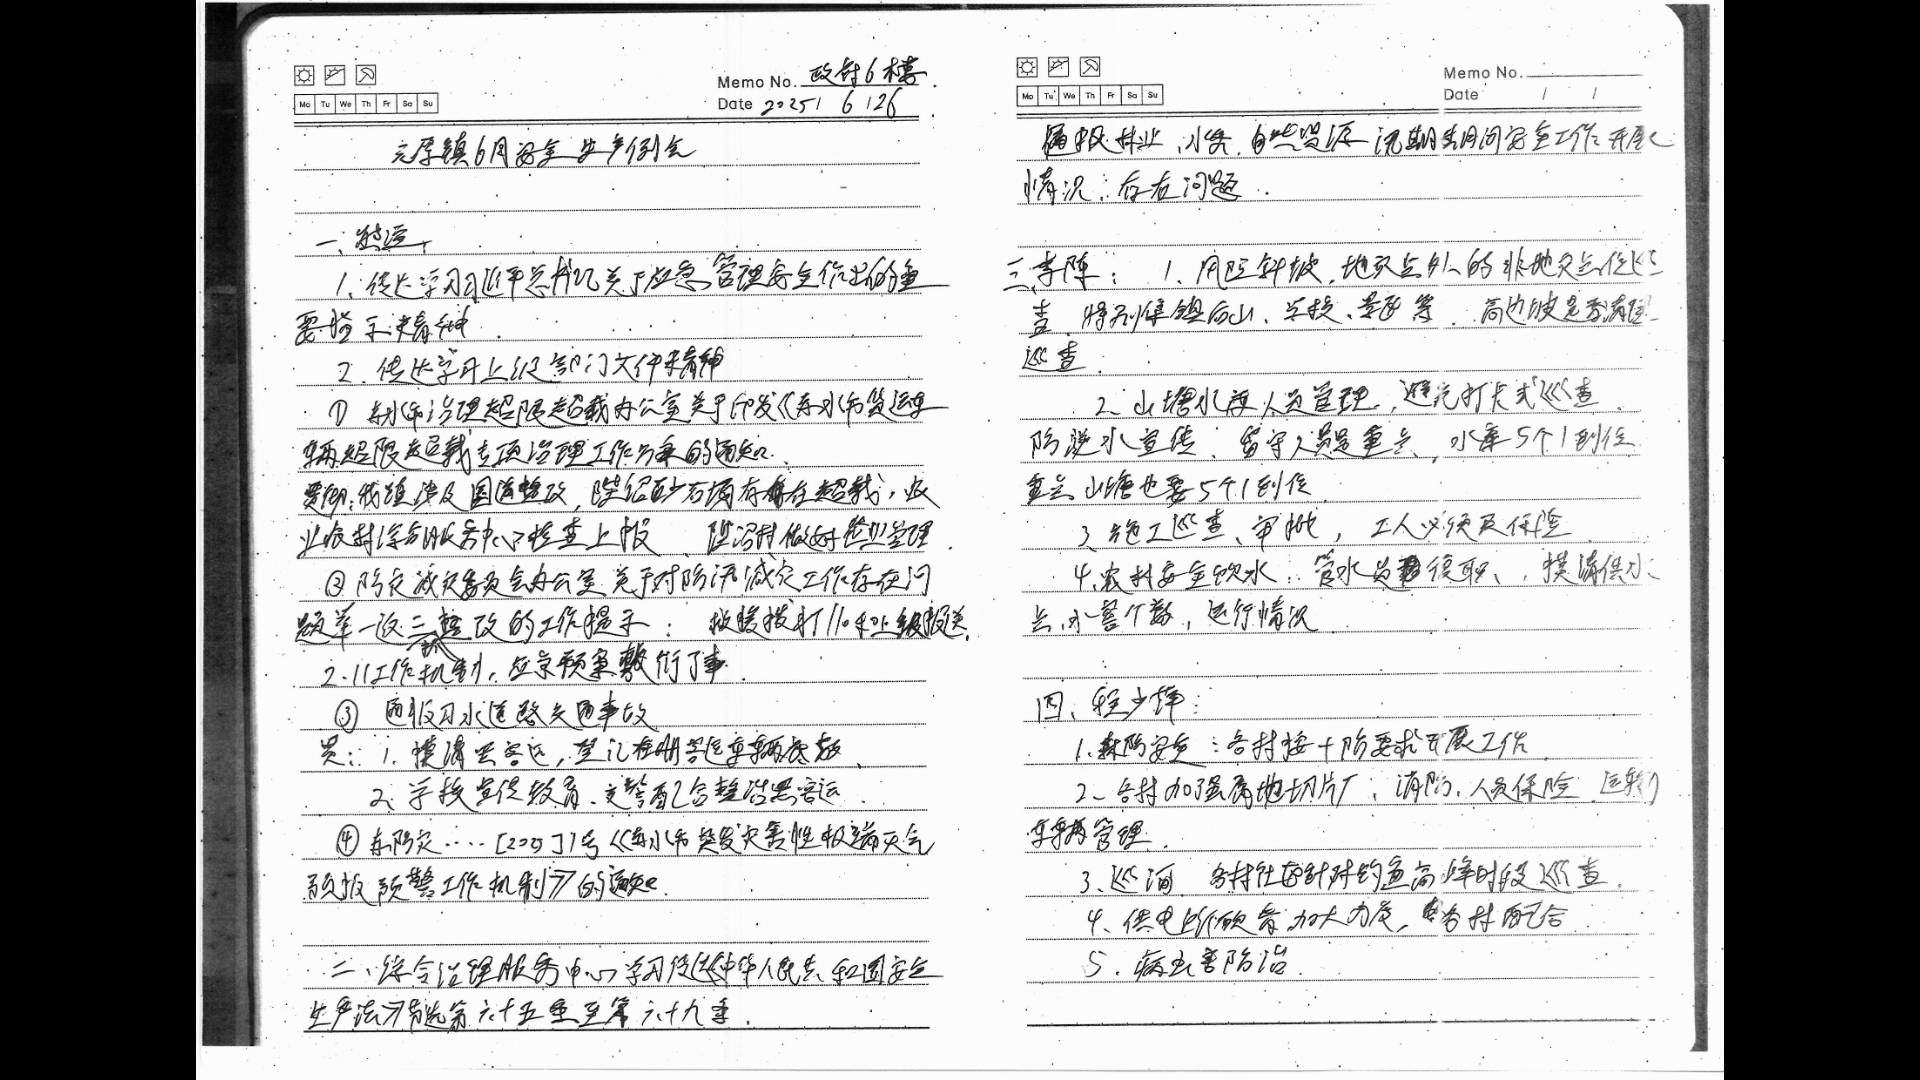 Memo No. 政府6楼
Mo Tu We Th Fr Sa Su
Date 2025 / 6 / 26
元厚镇6月安全生产例会
一、
1、传达学习习近平总书记关于应急管理安全作出的重
要指示精神
2、传达学习上级部门文件精神
① 赤水市治理超限超载办公室关于印发《赤水市货运车
辆超限超载专项治理工作方案的通知
我镇涉及国道整改,砂石场有存在超载,农
业农村综合服务中心检查上报、做好管理
② 防灾减灾委员会办公室关于对防汛减灾工作存在问
题举一反三整改的工作提示:救援拨打110和上级报送
2.11工作机制,应急预案敷衍了事.
③ 通报习水道路交通事故
1、摸清黑客运,登记在册营运车辆底数
2、学校宣传教育、交警配合整治黑客运
④ 赤防灾····[2025]1号《赤水市突发灾害性极端天气
预报预警工作机制》的通知
二、综合治理服务中心学习传达《中华人民共和国安全
生产法》节选第六十五章至第六十九章.
Memo No.
Mo Tu We Th Fr Sa Su
Date / /
通报林业、水务、自然资源 汛期期间安全工作开展
情况:存在问题.
三、李陈:1、风险斜坡,地灾点外的非地灾点位巡
查,特别集镇后山、学校、等.高边坡
巡查.
2、山塘水库人员管理,避免打卡式巡查.
防溺水宣传、留守人员是重点,水库5个1到位
重点山塘也要5个1到位.
3、施工巡查、审批,工人必须买保险.
4、农村安全饮水:管水员履职、摸清供水
点、水管个数,运行情况
四、程少锋:
1、森防安全:各村按十防要求开展工作
2、各村加强属地切片厂,消防、人员保险、运输
车辆管理.
3、巡河 各村社区针对钓鱼高峰时段巡查.
4、供电 加大力度,各村配合
5、病虫害防治.